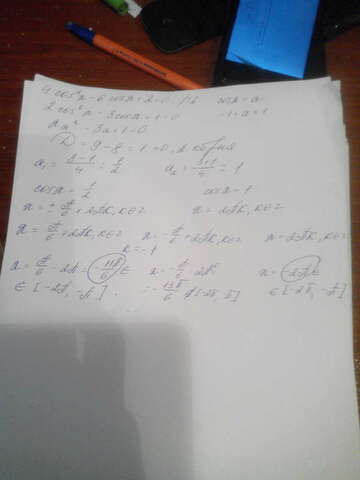 4 cos²x - 6 cosx + 2 = 0 /:2   cosx = a
2 cos²x - 3 cosx + 1 = 0   -1 ≤ a ≤ 1
2a² - 3a + 1 = 0
D = 9 - 8 = 1 > 0, 2 корня
a₁ = (3-1)/4 = 1/2   a₂ = (3+1)/4 = 1
cosx = 1/2   cosx = 1
x = ± π/6 + 2πk, k∈Z   x = 2πk, k∈Z
x = π/6 + 2πk, k∈Z   x = -π/6 + 2πk, k∈Z   x = 2πk, k∈Z
k = -1
x = π/6 - 2π = -11π/6 ∈   x = -π/6 - 2π   x = -2π
∈ [-2π, -π].   = -13π/6 ∉ [-2π, -π]   ∈ [-2π, -π]